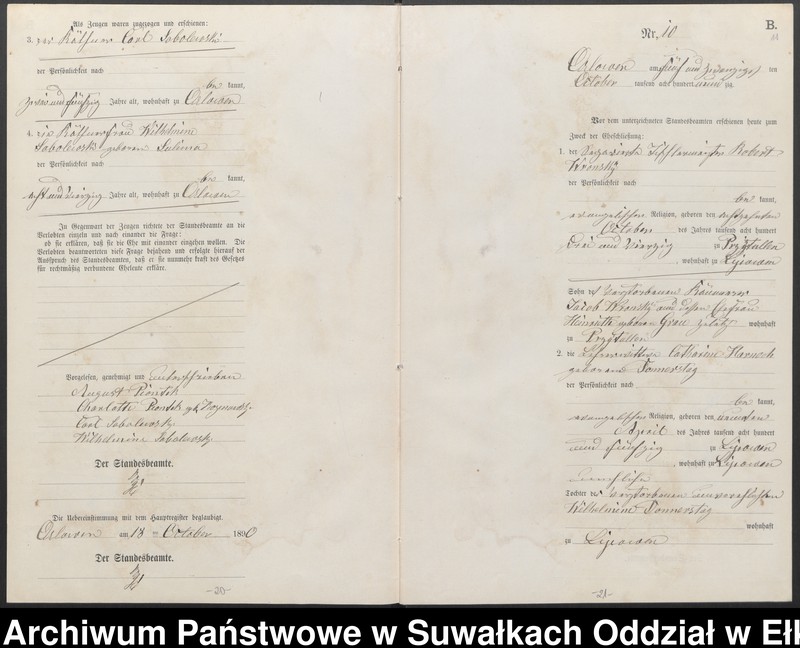 Als Zeugen waren zugezogen und erschienen:
3. der Käthner Carl Sobolewski
der Persönlichkeit nach
be kannt,
zwei und fünfzig Jahre alt, wohnhaft zu Czlowen
4. die Käthnerfrau Wilhelmine
Sobolewski geborene Sulima
der Persönlichkeit nach
be kannt,
acht und vierzig Jahre alt, wohnhaft zu Czlowen
In Gegenwart der Zeugen richtete der Standesbeamte an die
Verlobten einzeln und nach einander die Frage:
ob sie erklären, daß sie die Ehe mit einander eingehen wollen. Die
Verlobten beantworteten diese Frage bejahend und erfolgte hierauf der
Ausspruch des Standesbeamten, daß er sie nunmehr kraft des Gesetzes
für rechtmäßig verbundene Eheleute erkläre.
Vorgelesen, genehmigt und unterschrieben
August Piontek
Charlotte Piontek geb.
Carl Sobolewski
Wilhelmine Sobolewski
Der Standesbeamte.
Die Uebereinstimmung mit dem Hauptregister beglaubigt.
Czlowen am 18 ten October 1890
Der Standesbeamte.
-20-
B.
Nr. 10
Czlowen am fünf und zwanzigsten
October tausend acht hundert neunzig
Vor dem unterzeichneten Standesbeamten erschienen heute zum
Zweck der Eheschließung:
1. der Tischlermeister Robert
Wronsky
der Persönlichkeit nach
be kannt,
evangelischer Religion, geboren den achtzehnten
October des Jahres tausend acht hundert
drei und vierzig zu Przytullen
, wohnhaft zu Lipowen
Sohn des verstorbenen
Jacob Wronsky und dessen Ehefrau
Henriette geborene Grau zuletzt wohnhaft
zu Przytullen
2. die Catharine Harnoch
geborene Donnerstag
der Persönlichkeit nach
be kannt,
evangelischer Religion, geboren den neunten
April des Jahres tausend acht hundert
und fünfzig zu Lipowen
, wohnhaft zu Lipowen
uneheliche
Tochter der verstorbenen unverehelichten
Wilhelmine Donnerstag
wohnhaft
zu Lipowen
-21-
Archiwum Państwowe w Suwałkach Oddział w Ełk